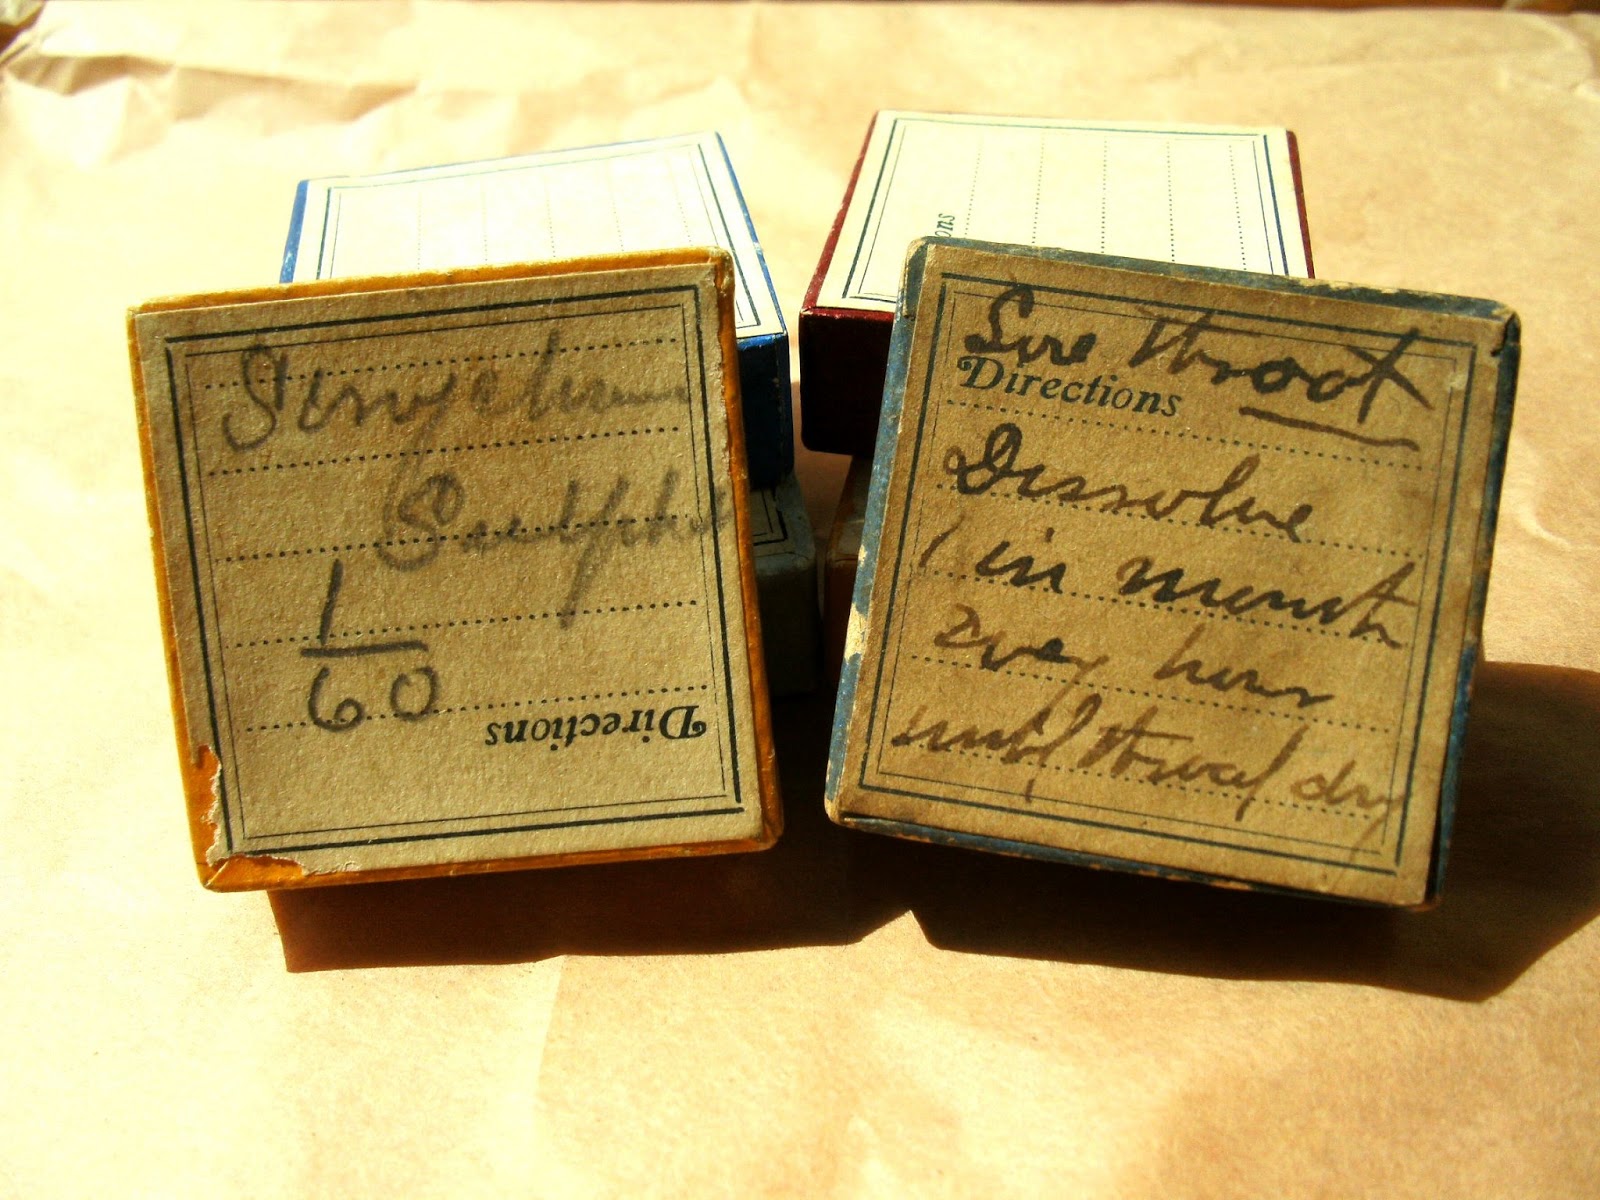 ons
Strychnine
Sulph
1
60
Directions
Sore throat
Directions
Dissolve
1 in mouth
every hour
until throat dry